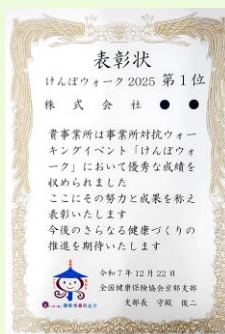 表彰状
けんぽウォーク 2025 第1位
株式会社 ●●
貴事業所は事業所対抗ウォー
キングイベント「けんぽウォ
ーク」において優秀な成績を
収められました
ここにその努力と成果を称え
表彰いたします
今後のさらなる健康づくりの
推進を期待いたします
令和7年12月22日
全国健康保険協会京都支部
支部長 守殿 俊二